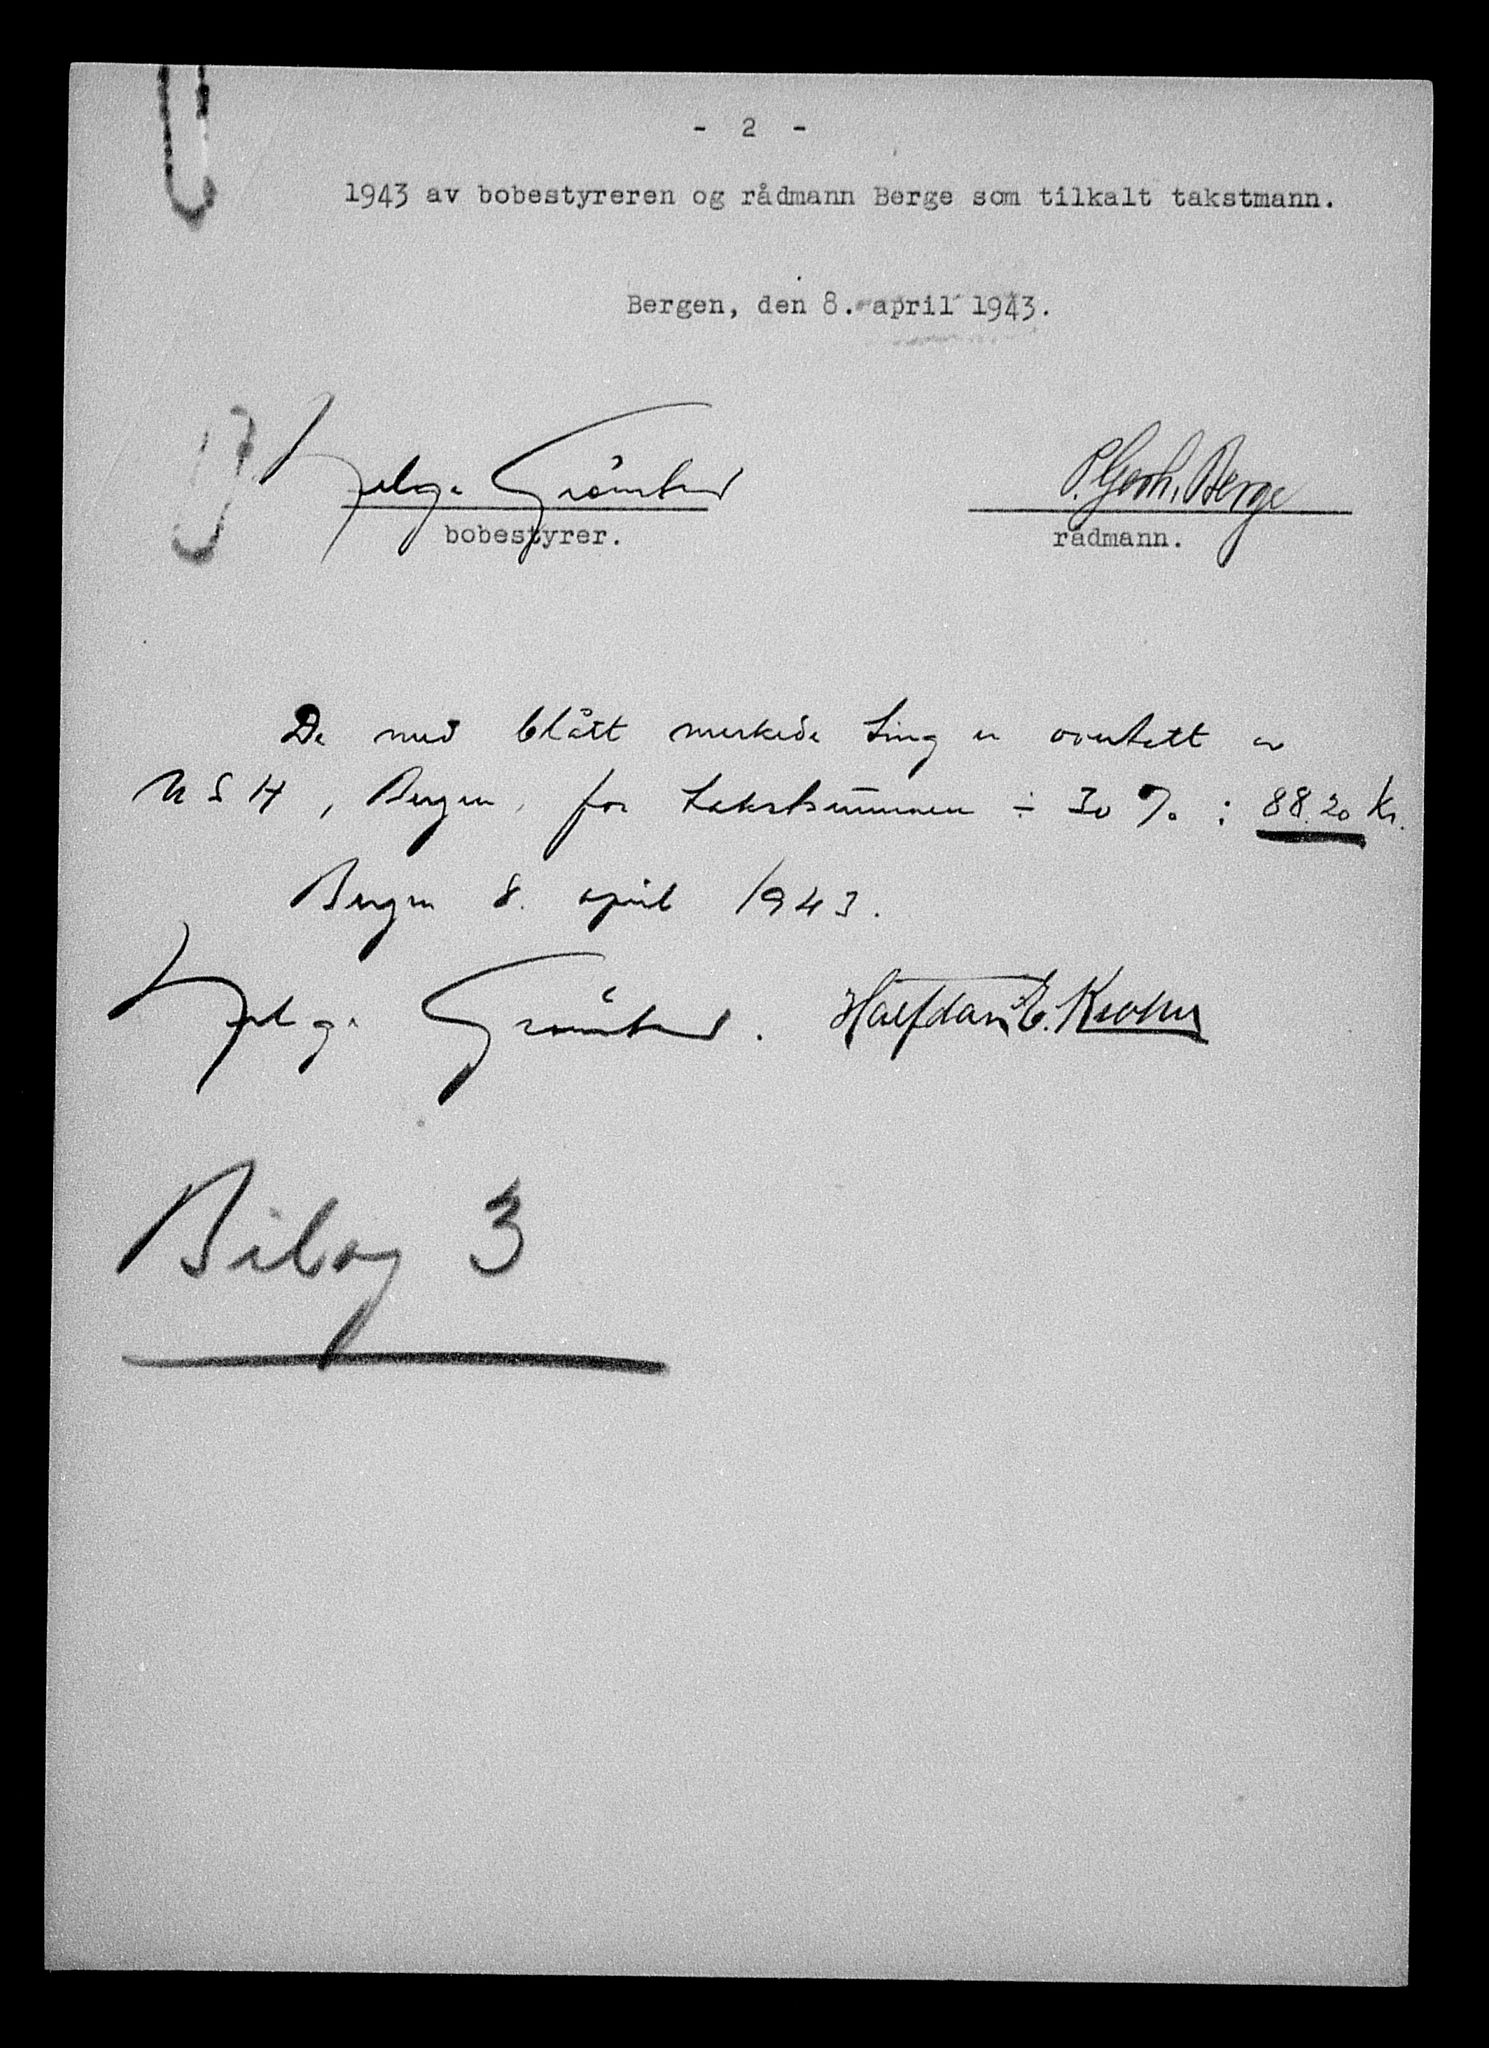 - 2 -
1943 av bobestyreren og rådmann Berge som tilkalt takstmann.
Bergen, den 8. april 1943.
Helge
P. Gerh. Berge
bobestyrer.
rådmann.
De med blått merkede ting er overtatt av
N S H, Bergen, for takstsummen ÷ 30 % : 88.20 Kr.
Bergen 8. april 1943.
Helge Halfdan E. Krohn
Bilag 3